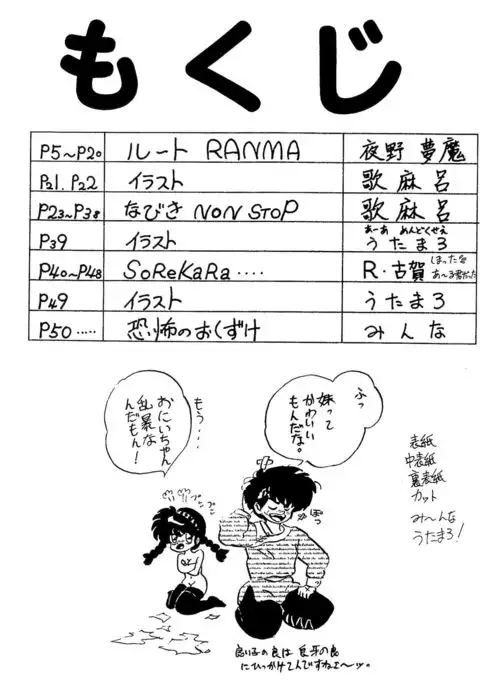 もくじ
P5~P20 ルート RANMA 夜野 夢魔
P21.P22 イラスト 歌麻呂
P23~P38 なびき NON STOP 歌麻呂
あーあ めんどくせえ
P39 イラスト うたまろ
P40~P48 SoReKaRa・・・・ R・古賀 しまったな あ〜る君だった
P49 イラスト うたまろ
P50・・・・・ 恐怖のおくずけ みんな
ふっ
妹って
かわいい
もんだな。
もう・・・
おにいちゃん
乱暴な
んだもん!
プンプン
ぽっ
表紙
中表紙
裏表紙
カット
み〜んな
うたまろ!
良い子の良は 良牙の良
にひっかけてんですねぇ〜ッ。